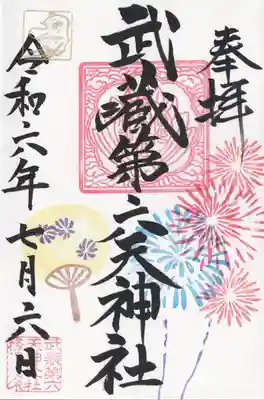 奉拝
武蔵第六天神社
令和六年七月六日
武蔵第六
天神社